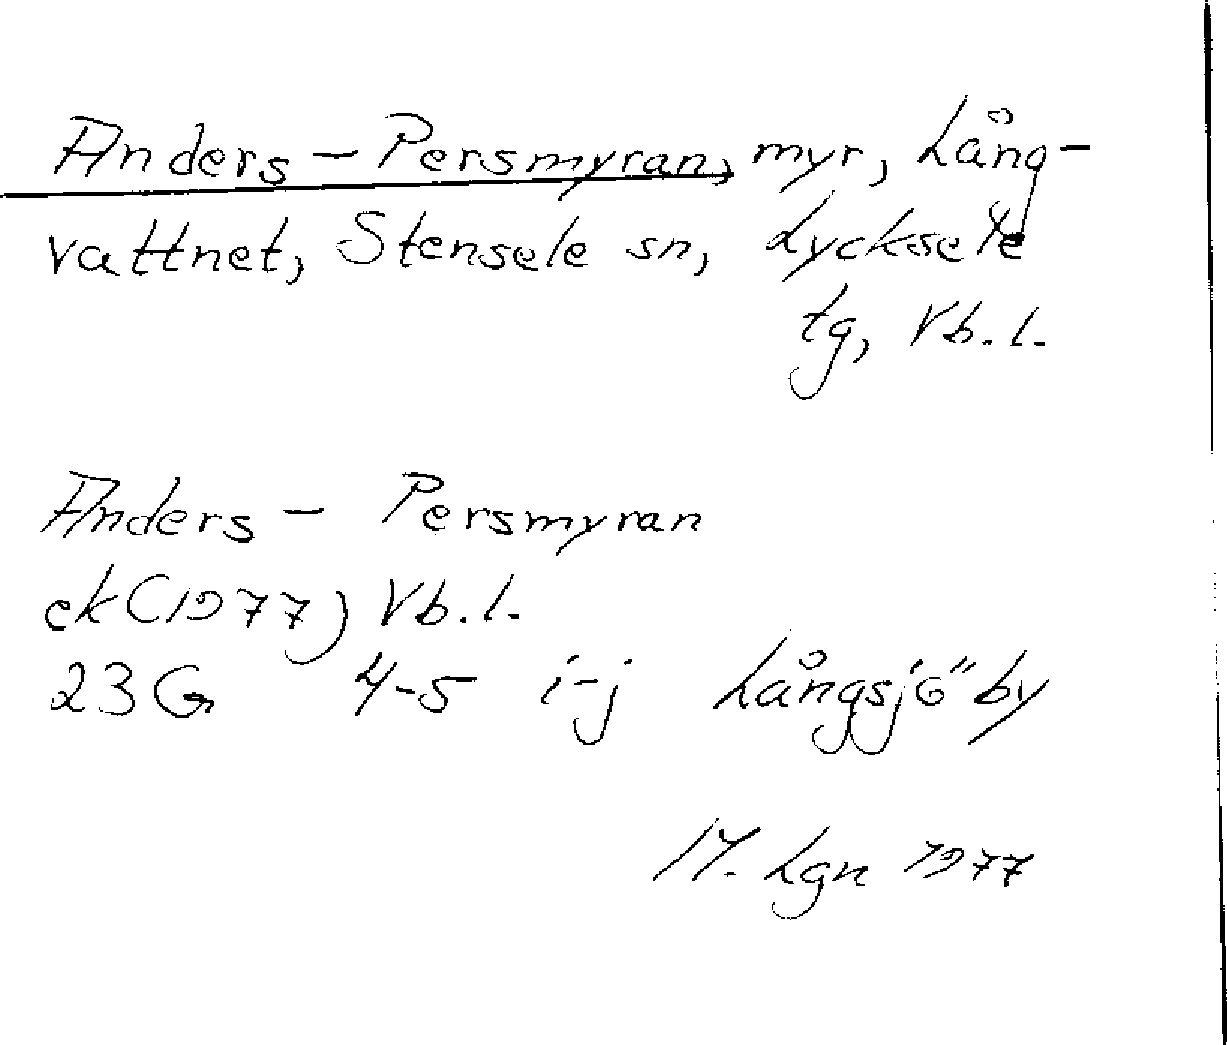 Anders-Persmyran, myr, Lång-
vattnet, Stensele sn, Lycksele
tg, Vb.l.
Anders - Persmyran
ek (1977) Vb.l.
23 G 4-5 i-j Långsjöby
Lgn 1977